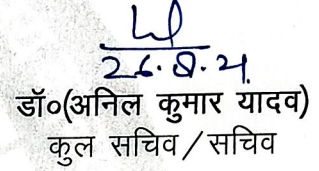 26.8.21
डॉ०(अनिल कुमार यादव)
कुल सचिव / सचिव